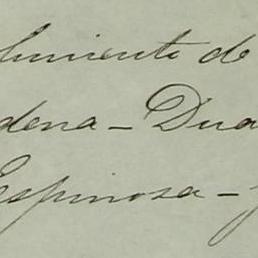 limiento de
dena - Dua
Espinosa - y